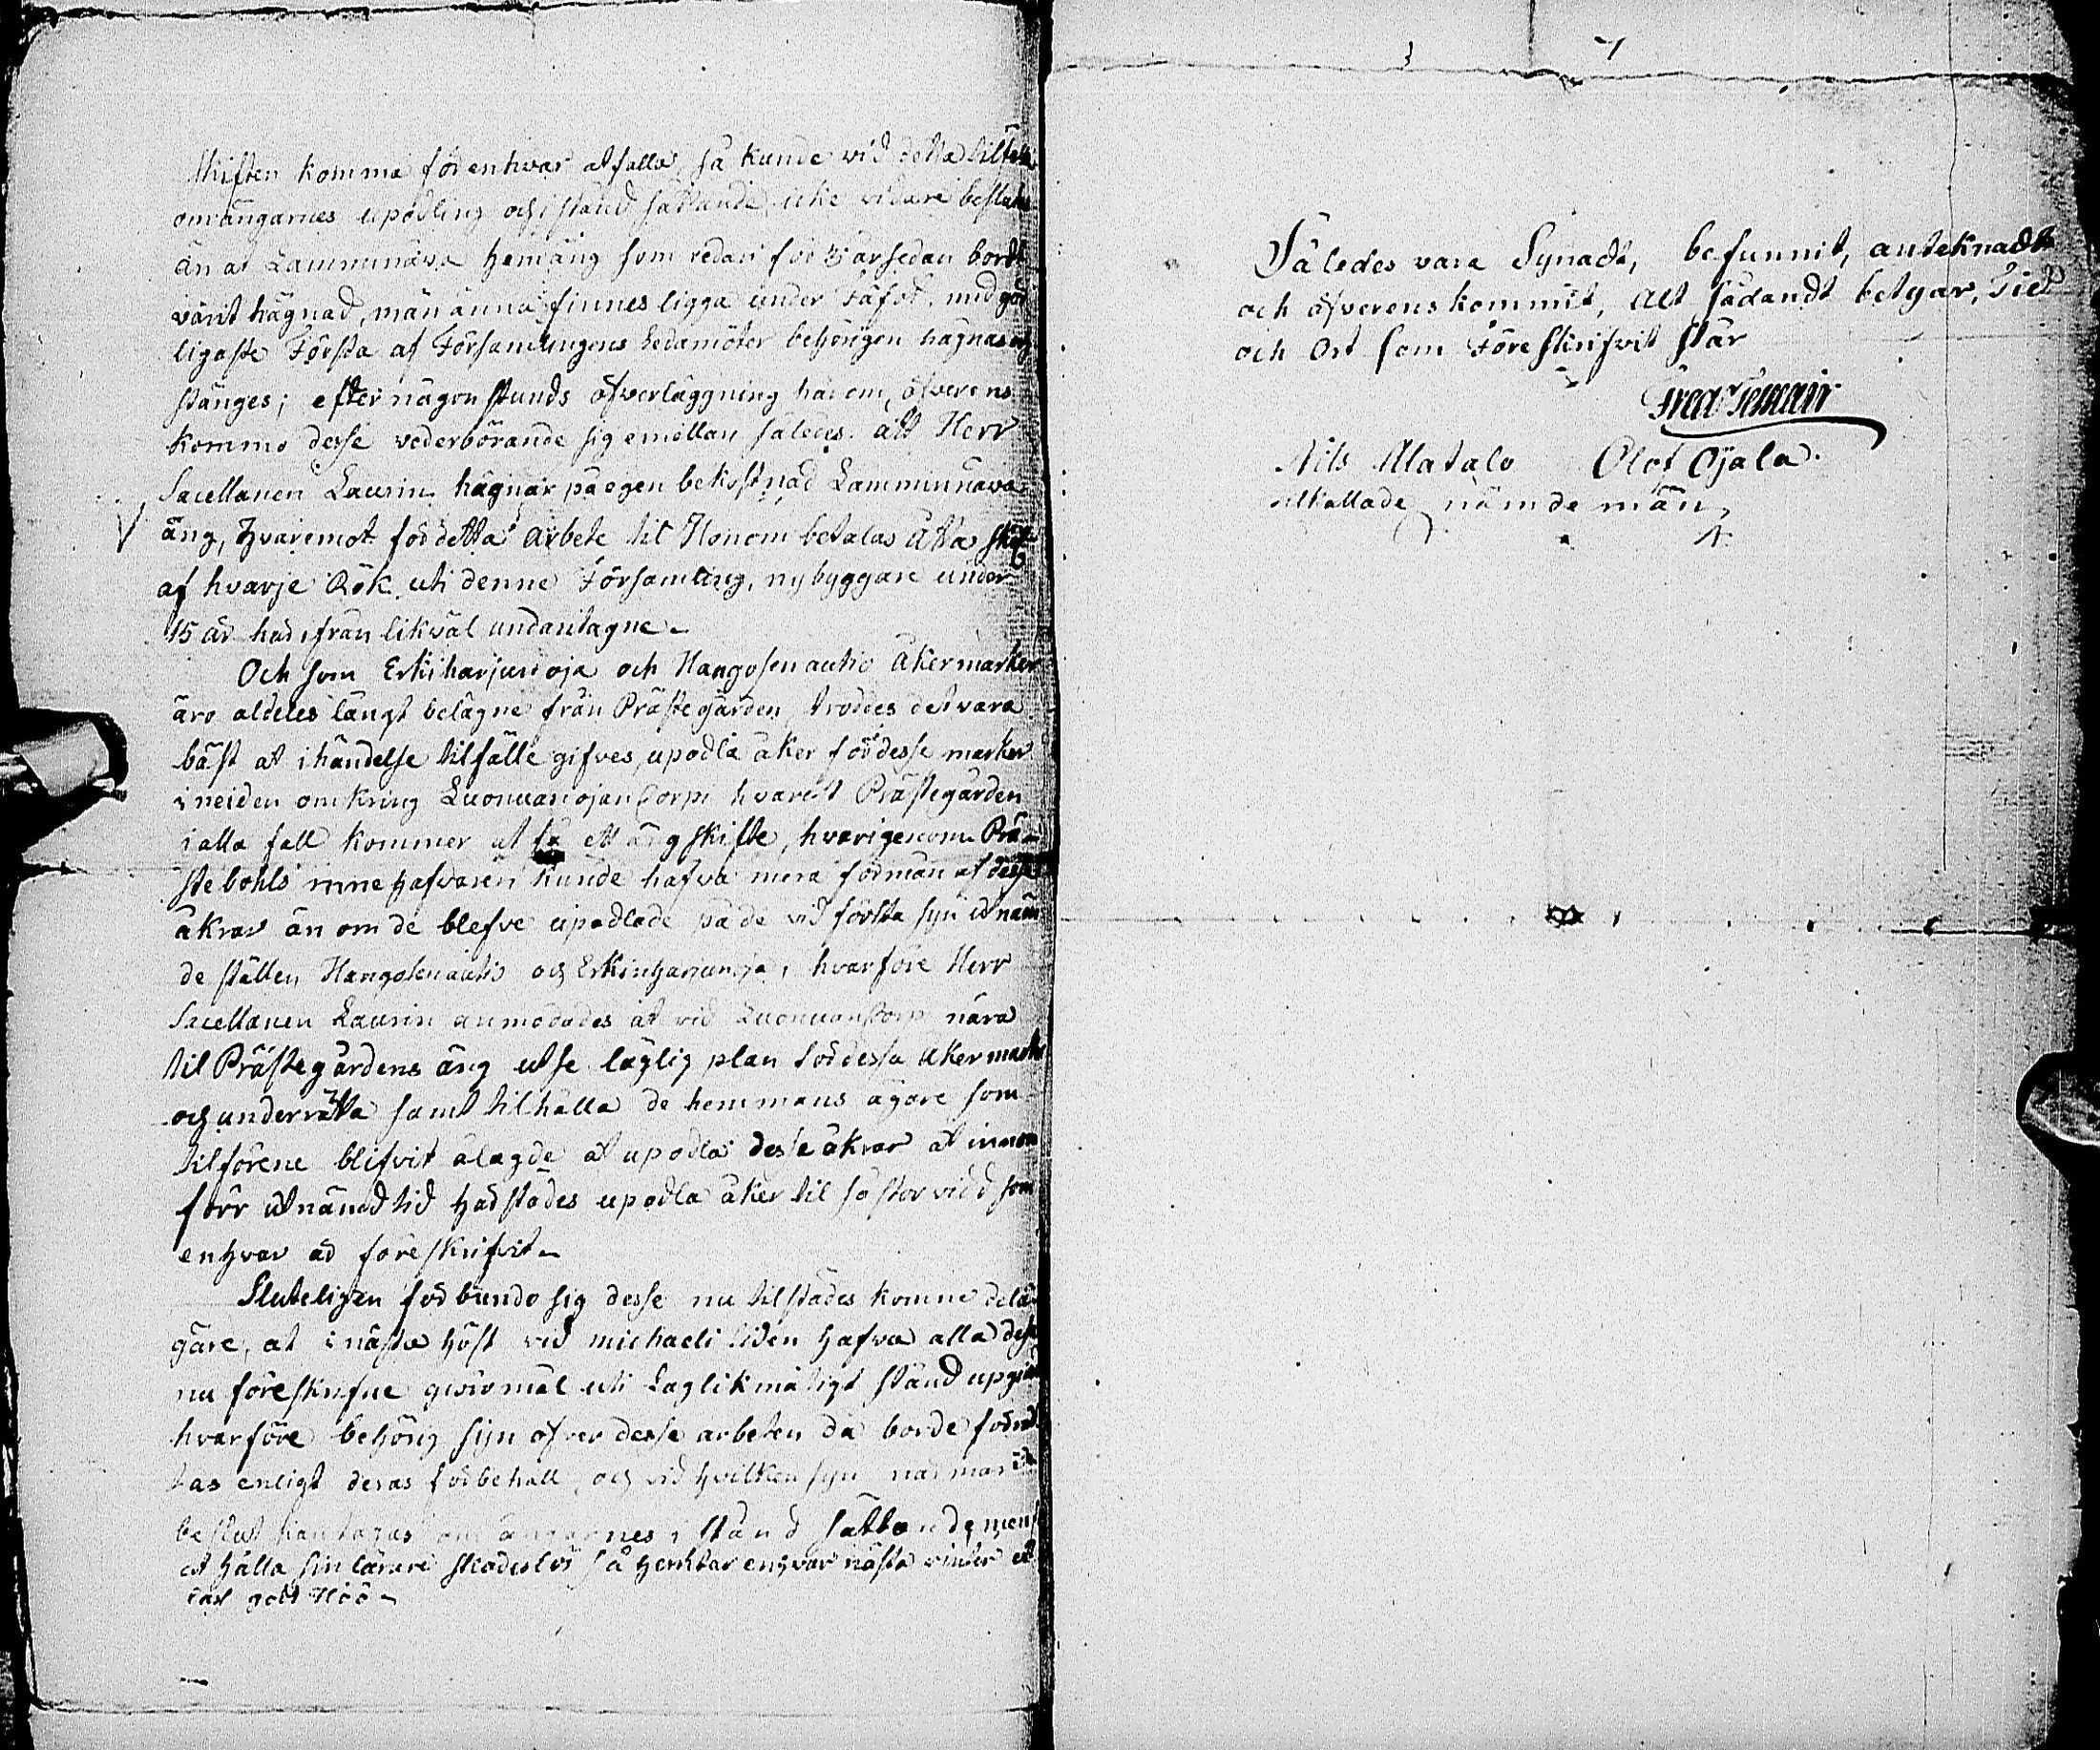 skiften komma för enhvar at falla, så kunde vid detta tilfälle
om ängarnes upodling och i stånd sättande icke vidare beslutas
än at Lamminnäva hemäng som redan för 3 år sedan bordt
varit hägnad, män ännu finnes ligga under Fäfot, med god
ligaste Första af Församlingens Ledamöter behörigen hägnas och
stänges; efter någon stunds öfverläggning härom, öfverens
kommo desse vederbörande sig emellan således. att Herr
Sacellanen Laurin hägnar på egen bekostnad Lamminnäva
äng, hvaremot för detta arbete til Honom betalas Åtta sk
af hvarje Rök uti denne Församling, nybyggare under
15 år härifrån likväl undantagne.
Och som Erkiharjunoja och Hangosenautio åkermarker
äro aldeles långt belägne från Prästegården, troddes det vara
bäst at i händelse tilfälle gifves, upodla åker för desse marker
i neiden omkring Luonuanojan Corpi hvarest Prästegården
i alla fall kommer at få ett äng skifte, hvarigenom Prä-
stebohls innehafvaren kunde hafva mera förmån af desse
åkrar än om de blefve upodlade på de vid första syn utnäm
de ställen Hangosenautio och Erkinharjunoja, hvarföre Herr
Sacellanen Laurin anmodades at vid Luonuan Corpi nära
til Prästegårdens äng utse läglig plan för dessa åkermarker
och underrätta samt tilhålla de hemmans ägare som
tilförene blifvit ålagde at upodla desse åkrar at innom
förr utnämd tid härstädes upodla åker til så stor vidd som
enhvar är föreskrifvit.
Sluteligen förbundo sig desse nu tilstädes komne delä-
gare, at i nästa höst vid michaeli tiden hafva alla desse
nu föreskrifne qwormål uti Laglikmätigt stånd
hvarföre behörig syn öfver desse arbeten då borde förrät
tas enligt deras förbehåll, och vid hvilken syn närmare
beslut kan tagas om ängarnes i stånd sättande, men
at hålla sin lärare skadeslös så hemtar enhvar nästa vinter et
lass godt Höö.
Således vara Synadt, befunnit, anteknadt
och öfverenskommit, Alt sådandt betygar, Tid
och Ort som Föreskrifvit står
Fred
Nils Alatalo Olof Ojala.
tilkallade nämdemän